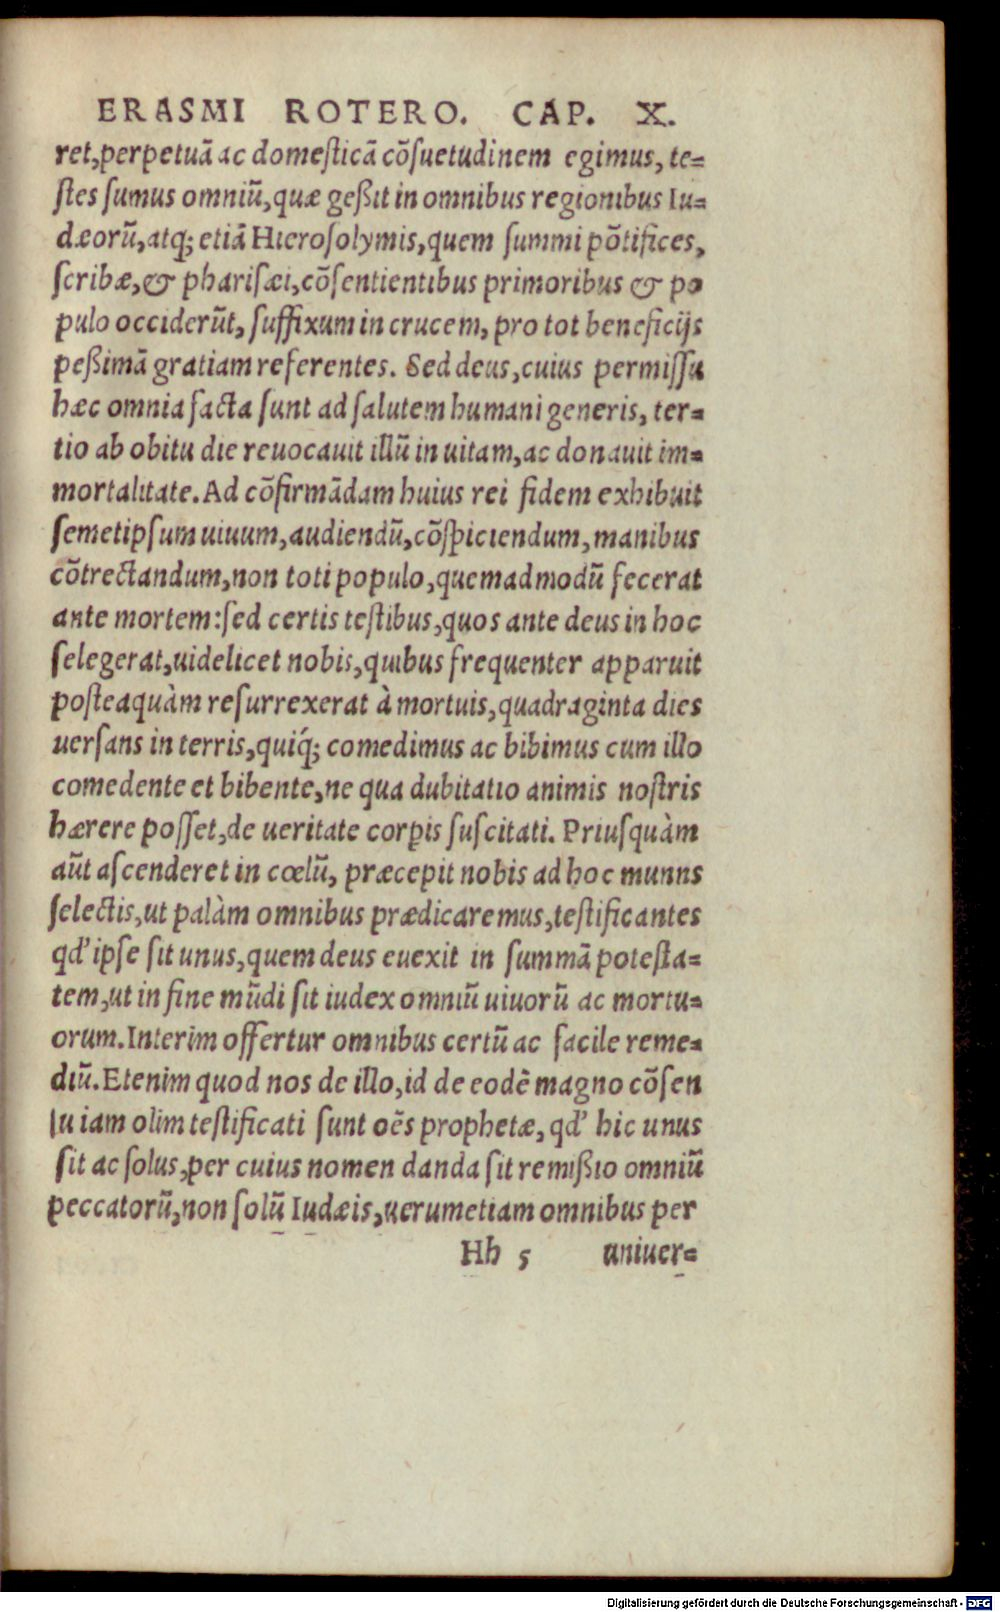 ERASMI ROTERO. CAP. X.
ret,perpetuā ac domesticā cōsuetudinem egimus, te=
stes sumus omniū,quæ geßit in omnibus regionibus Iu=
dæorū,atq; etiā Hierosolymis,quem summi pōtifices,
scribæ,& pharisæi,cōsentientibus primoribus & po
pulo occiderūt, suffixum in crucem, pro tot beneficijs
peßimā gratiam referentes. Sed deus,cuius permissu
hæc omnia facta sunt ad salutem humani generis, ter=
tio ab obitu die reuocauit illū in uitam,ac donauit im=
mortalitate. Ad cōfirmādam huius rei fidem exhibuit
semetipsum uiuum,audiendū,cōspiciendum,manibus
cōtrectandum,non toti populo,quemadmodū fecerat
ante mortem:sed certis testibus,quos ante deus in hoc
selegerat,uidelicet nobis,quibus frequenter apparuit
posteaquàm resurrexerat à mortuis,quadraginta dies
uersans in terris,quiq́; comedimus ac bibimus cum illo
comedente et bibente,ne qua dubitatio animis nostris
hærere posset,de ueritate corpis suscitati. Priusquàm
aūt ascenderet in cœlū, præcepit nobis ad hoc munns
selectis,ut palàm omnibus prædicaremus,testificantes
qd' ipse sit unus,quem deus euexit in summā potesta=
tem,ut in fine mūdi sit iudex omniū uiuorū ac mortu=
orum. Interim offertur omnibus certū ac facile reme=
diū. Etenim quod nos de illo,id de eodē magno cōsen
su iam olim testificati sunt oēs prophetæ, qd' hic unus
sit ac solus,per cuius nomen danda sit remißio omniū
peccatorū,non solū Iudæis,uerumetiam omnibus per
Hh 5 uniuer=
Digitalisierung gefördert durch die Deutsche Forschungsgemeinschaft - DFG